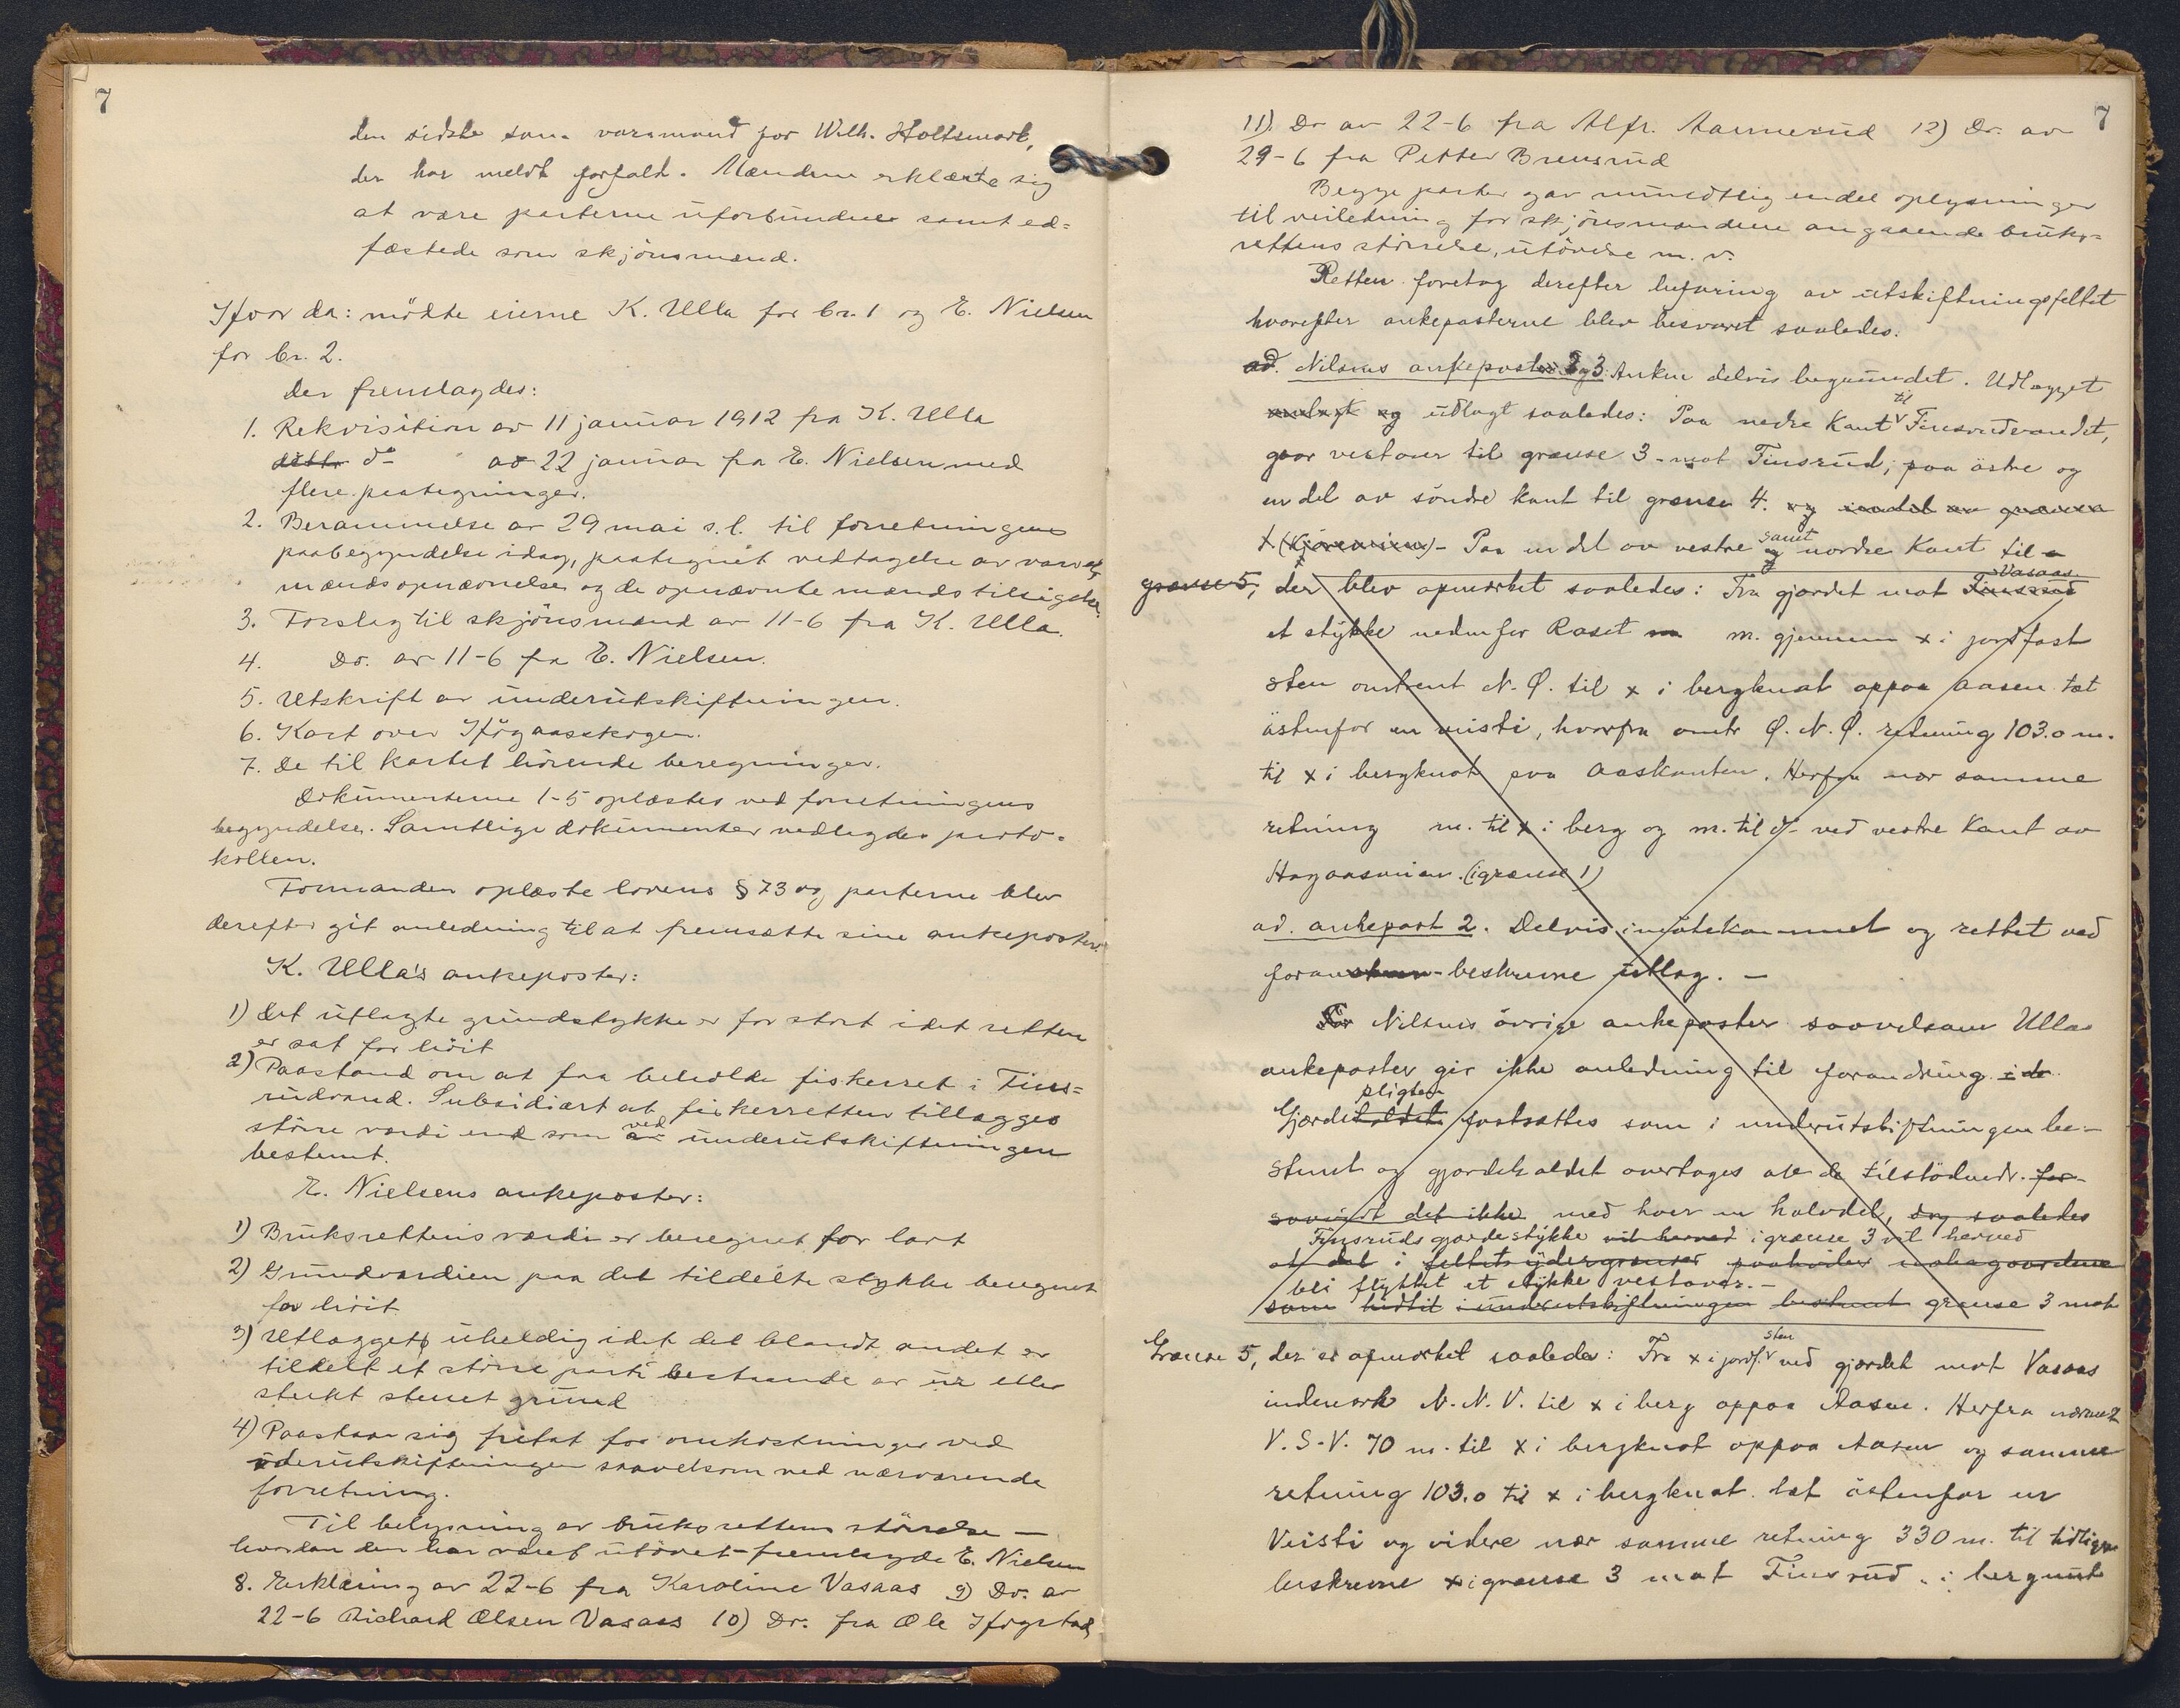 7
den sidste som varamand for Wilh. Holtsmark,
der har meldt forfald. Mændene erklærte sig
at være parterne uforbundne samt ed=
fæstede som skjönsmænd.
for da: mödte eierne K. Ulla for br. 1 og E. Nielsen
for br. 2.
Der fremlagdes:
1. Rekvisition av 11 januar 1912 fra K. Ulla
detto do av 22 januar fra E. Nielsen med
flere paategninger.
2. Berammelse av 29 mai s.l. til forretningens
paabegyndelse idag, paategnet vedtagelse av varsel,
mænds opnævnelse og de opnævnte mænds tilsigelse.
3. Forslag til skjönsmænd av 11-6 fra K. Ulla.
4. Do. av 11-6 fra E. Nielsen.
5. Utskrift av underutskiftningen.
6. Kart over Högaasskogen.
7. De til kartet hörende beregninger.
Dokumenterne 1-5 oplæstes ved forretningens
begyndelse. Samtlige dokumenter vedlegdes proto=
kollen.
Formanden oplæste lovens § 73 og parterne blev
derefter git anledning til at fremsætte sine ankeposter.
K. Ulla's ankeposter:
1) Det utlagte grundstykke er for stort idet retten
er sat for höit
2) Paastand om at faa beholde fiskerret i Fins=
rudvand. Subsidiært at fiskerretten tillægges
större værdi end som av ved underutskiftningen
bestemt.
E. Nielsens ankeposter:
1) Bruksrettens værdi er beregnet for lavt
2) Grundværdien paa det tildelte stykke beregnet
for höit
3) Utlægget uheldig idet det blandt andet er
tildelt et större parti bestaaende av ur eller
sterkt stenet grund
4) Paastaar sig fritat for omkostninger ved
underutskiftningen saavelsom ved nærværende
forretning.
Til belysning av bruksrettens störrelse —
hvordan den har været utövet – fremlagde E. Nielsen
8. Erklæring av 22-6 fra Karoline Vasaas 9) Do. av
22-6 Richard Olsen Vasaas 10) Do. fra Ole Högstad
7
11) Do av 22-6 fra Alfr. Aamerud 12) Do. av
29-6 fra Petter Brensrud
Begge parter gav mundtlig endel oplysninger
til veiledning for skjönsmændene angaaende bruks=
rettens störrelse, utövelse m. v.
Retten foretog derefter befaring av utskiftningsfeltet
hvorefter ankeposterne blev besvaret saaledes.
ad. Nilsens ankeposter 3. Anken delvis begrundet. Utlægget
og utlagt saaledes: Paa nedre kant til Finsrudvandet,
gaar vestover til grænse 3 mot Finsrud; paa östre og
en del av söndre kant til grænse 4. og endel av grænse
Paa en del av vestre og samt nordre kant til
grænse 5, der blev opmerket saaledes: Fra gjærdet mot Finsrud Vasaas
et stykke nedenfor Raset m. gjennem x i jordfast
sten omtrent N. Ø. til x i bergknat oppaa aasen tæt
östenfor en veisti, hvorfra omtr Ø. N. Ø. retning 103.0 m.
til x i bergknat paa aaskanten. Herfra nær samme
retning m. til x i berg og m. til do ved vestre kant av
(i grænse 1)
ad. ankepost 2. Delvis imötekommet og rettet ved
foran beskrevne utlæg. —
Nilsens övrige ankeposter saavelsom Ullas
ankeposter gir ikke anledning til forandring i de
pligten
Gjærdeholdet fastsættes som i underutskiftningen be=
stemt og gjærdeholdet overtages av de tilstödende. for
saavidt det ikke med hver en halvdel, dog saaledes
Finsruds gjærdestykke vil herved i grænse 3 vil herved
at det i feltets ydergrænser paahviler nabogaardene
bli flyttet et stykke vestover. —
som hidtil i underutskiftningen bestemt grænse 3 mot
Grænse 5, der er opmerket saaledes: Fra x i jordf. sten ved gjærdet mot Vasaas
indmark N. N. V. til x i berg oppaa Aasen. Herfra nærmest
V. S. V. 70 m. til x i bergknat oppaa Aasen og samme
retning 103.0 til x i bergknat tæt östenfor en
Veisti og videre nær samme retning 330 m. til tidligere
beskrevne x i grænse 3 mot Finsrud i